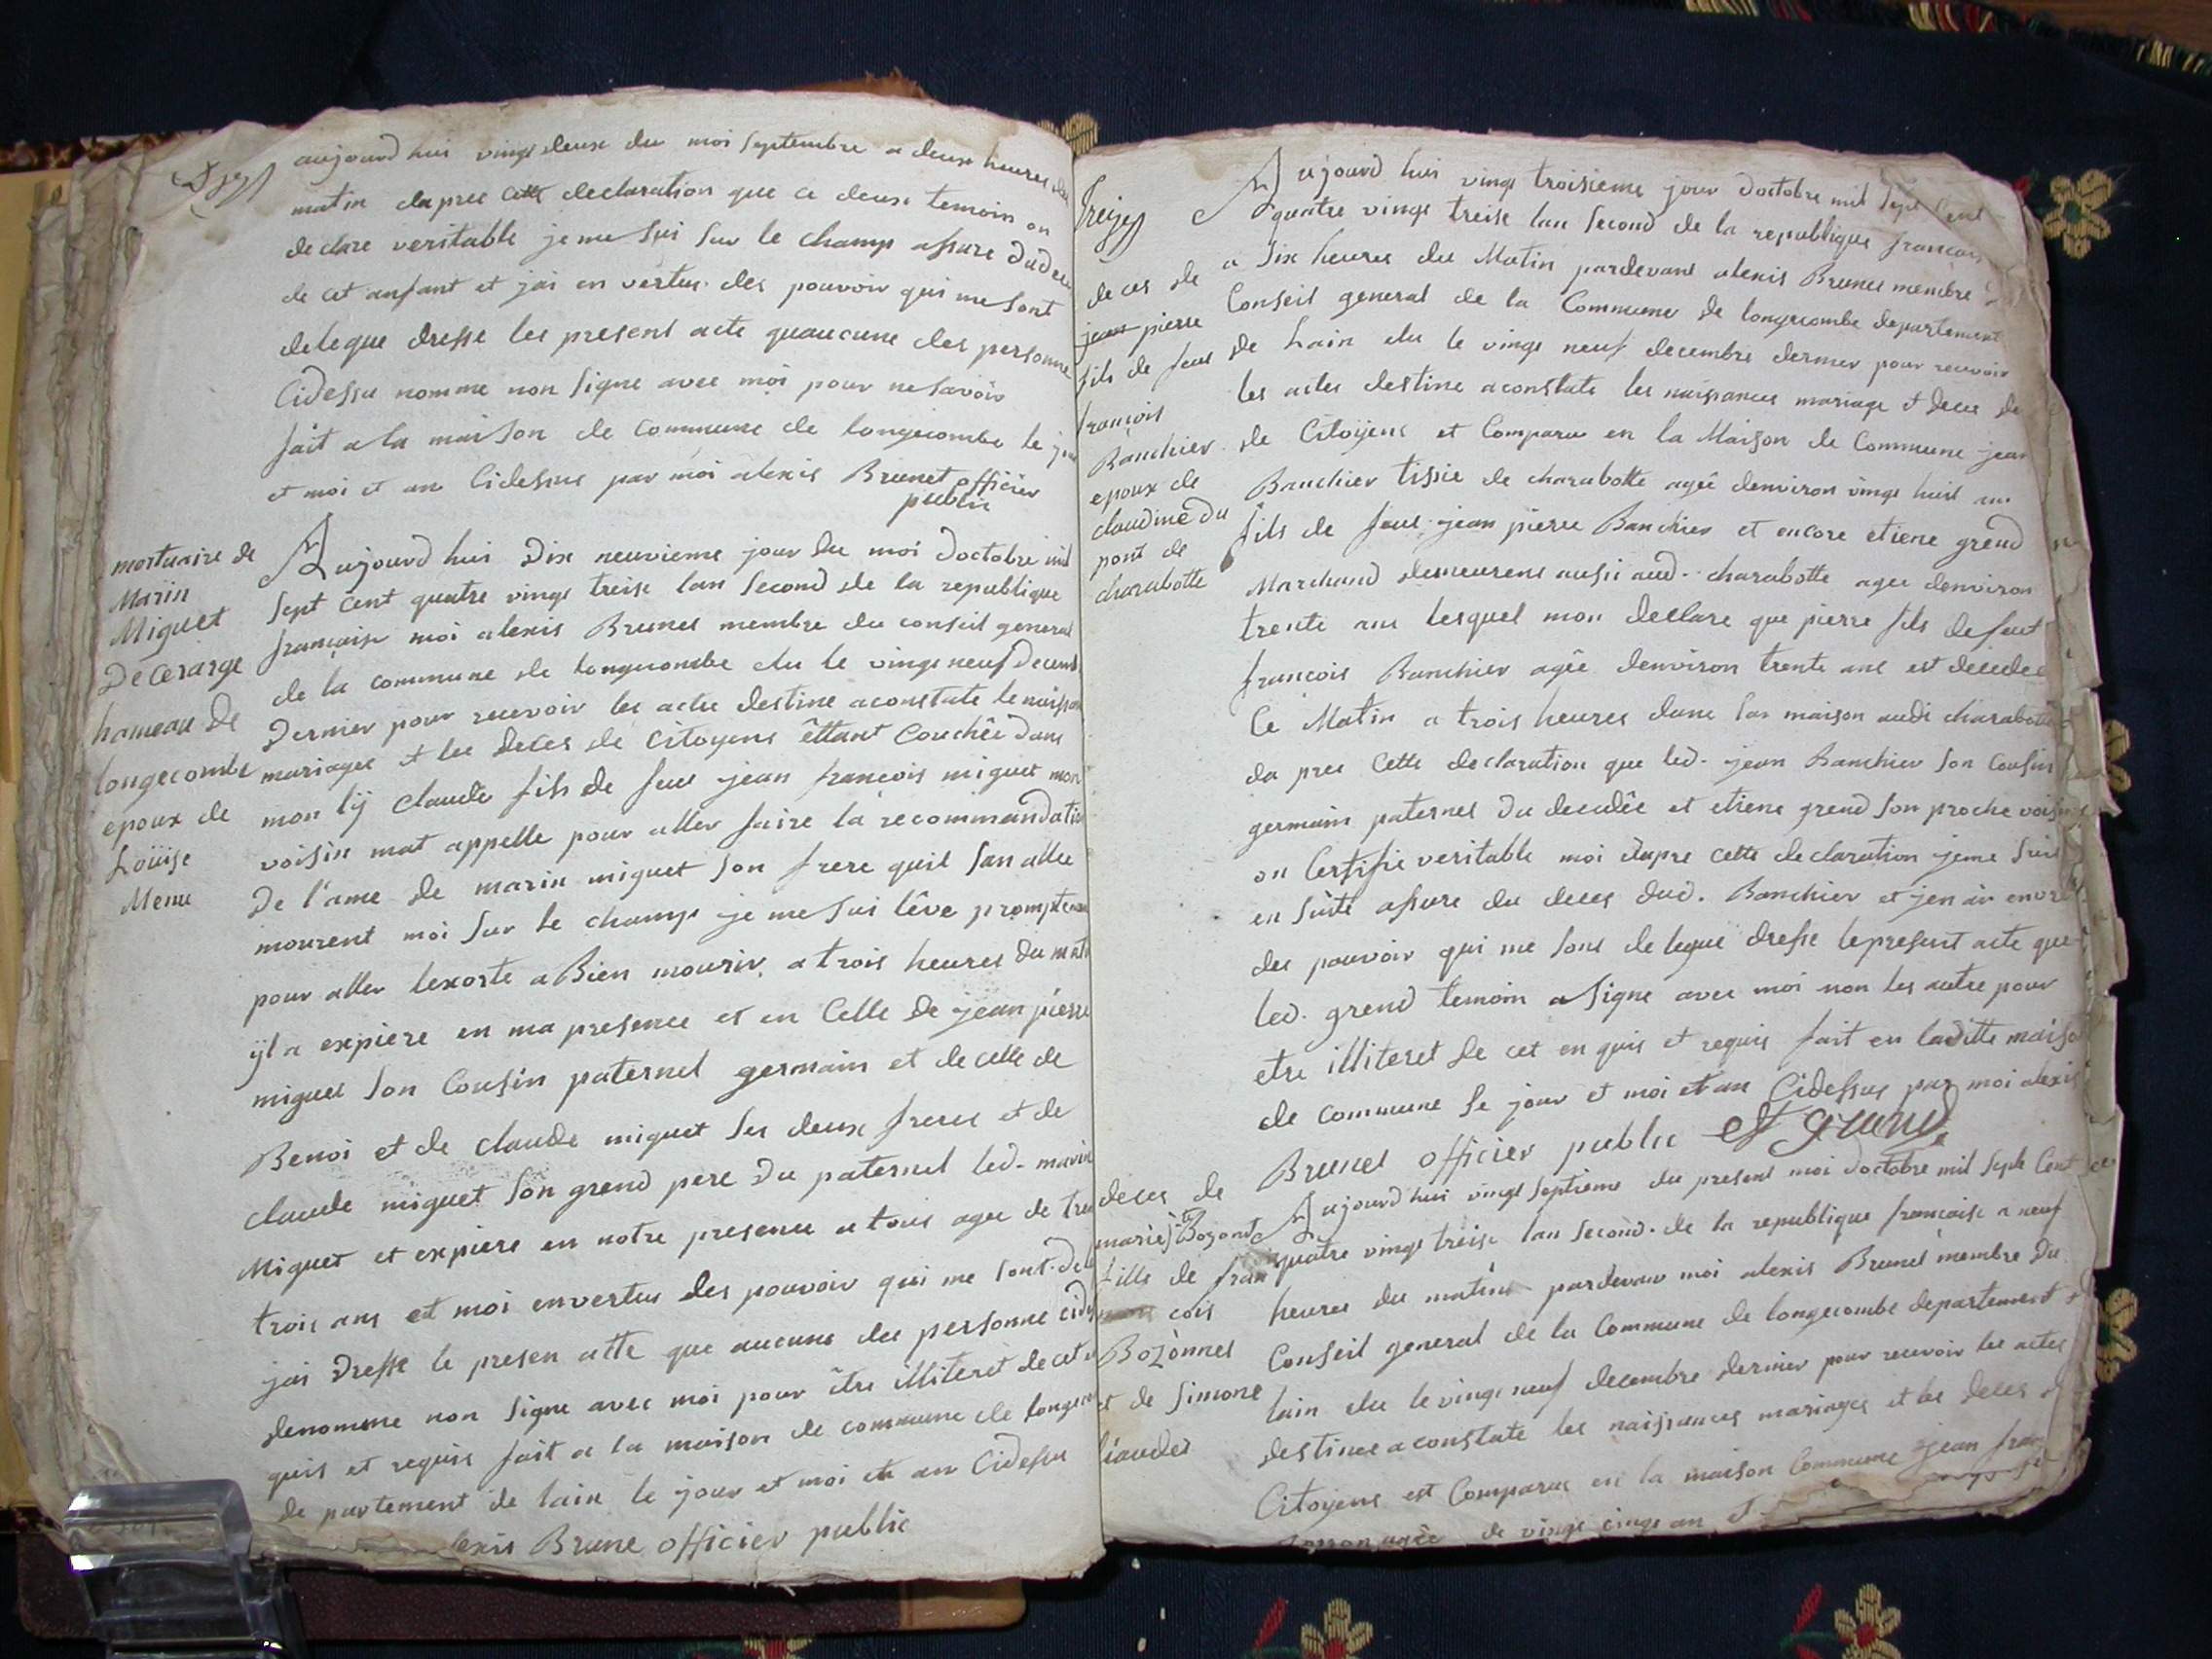 aujourd hui vingt deux du moi septembre a deux heures du
matin dapres cette declaration que ce deux temoin on
declare veritable je me sui sur le champ assure du deces
de cet anfant et jai en vertus des pouvoir qui me sont
delegue dresse les present acte quaucune des personne
Cidessu nomme non signe avec moi pour ne savoir
fait a la maison de commune de longecombe le jour
et moi et an Cidessus par moi alexis Brunet officier
public
mortuaire de
Marin
Miguet
De Cerarge
hameau de
longecombe
epoux de
Loüise
Menu
Aujourd hui Dix neuvieme jour du moi doctobre mil
sept cent quatre vingt treise lan second de la republique
francaise moi alexis Brunet membre du conseil general
de la commune de longecombe elu le vingt neuf decemb
Dernier pour recevoir les actes destine a constate le naissan
mariages et les deces de Citoyens êttant Couchêe dans
mon lÿ claude fils de feu jean francois miguet mon
voisin mat appelle pour aller faire la recommandatio
De l'ame de marin miguet son frere quil san allee
mourent moi sur le champ je me sui lêve promptem
pour aller lexorte a Bien mourir a trois heures du mati
ÿl a expiere en ma presence et en Celle de jean pierre
miguet son Cousin paternel germain et de celle de
Benoi et de claude miguet ses deux freres et de
claude miguet son grend pere Du paternel led. marin
Miguet et expiere en notre presence a tous agee de tren
trois ans et moi en vertus des pouvoir qui me sont del
jai dresse le presen atte que aucune des personne cide
denomme non signe avec moi pour être illiteret de cet en
quis et requis fait a la maison de commune de longeco
de partement de lain le jour et moi et an Cidessu
alexis Brune officier public
Treize
deces de
jean pierre
fils de feu
francois
Banchier
epoux de
claudine du
pont de
charabotte
Aujourd hui vingt troisieme jour doctobre mil sept cent
quatre vingt treise lan second de la republique francais
a six heures du Matin pardevant alexis Brunet membre
Conseil general de la Commune de longecombe departement
de Lain elu le vingt neuf decembre dernier pour recevoir
les actes destine a constate les naissances mariage et deces de
de Citoÿens et Comparu en la Maison de Commune jean
Banchier tissie de charabotte agêe denviron vingt huit an
fils de feu jean pierre Banchier et encore etiene grend
Marchand demeurent aussi aud. charabotte agee denviron
trente an lesquel mon declare que pierre fils de feu
francois Banchier agêe denviron trente ans est decedee
Ce Matin a trois heures dans sa maison audi charabotte
da pres cette declaration que led. jean Banchier son Cousin
germain paternel du decedêe et etiene grend son proche voisin
on Certifie veritable moi dapre cette declaration je me suis
en suite assure du deces dud. Banchier et jen ai en ver
des pouvoir qui me sont delegue dresse le present acte que
led. grend temoin a signe avec moi non les autre pour
etre illiteret de cet en quis et requis fait en laditte maiso
de commune le jour et moi et an Cidessus par moi alexis
Brunet officier public et grand
deces de
marie Bozonet
fille de fran
cois
Bozònnet
et de simone
Aujourd hui vingt septieme du present moi doctobre mil sept Cent
quatre vingt treise lan second de la republique francaise a neuf
heures du matin pardevant moi alexis Brunet membre Du
Conseil general de la Commune de longecombe departement
lain elu le vingt neuf decembre dernier pour recevoir les actes
destinee a constate les naissances mariages et les deces
Citoyens est Comparus en la maison Commune jean fran
agêe de vingt cinq an et